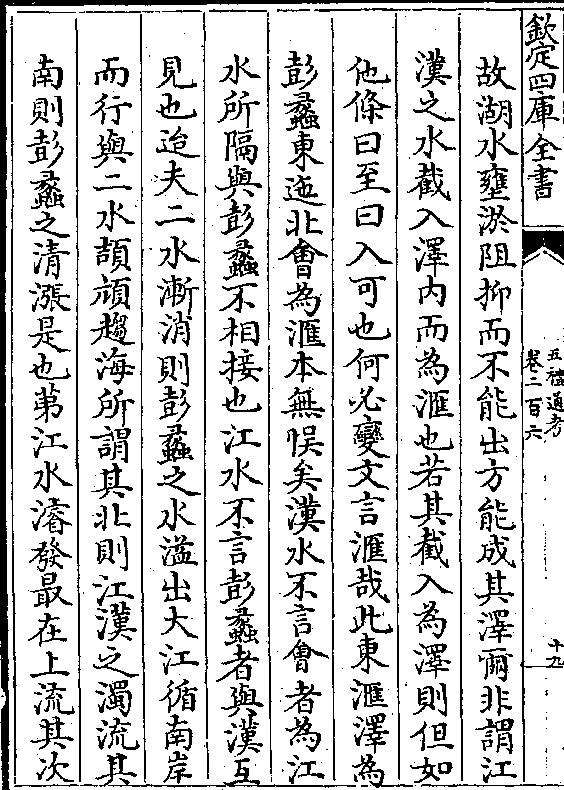 欽定四庫全書
五禮通考
卷二百六
十九
故湖水壅淤阻抑而不能出方能成其澤爾非謂江
漢之水截入澤内而為滙也若其截入為澤則但如
他條曰至曰入可也何必變文言滙哉此東滙澤為
彭蠡東迤北會為滙本無悮矣漢水不言會者為江
水所隔與彭蠡不相接也江水不言彭蠡者與漢互
見也迨夫二水漸消則彭蠡之水溢出大江循南岸
而行與二水頡頏趨海所謂其北則江漢之濁流其
南則彭蠡之清漲是也苐江水濬發最在上流其次